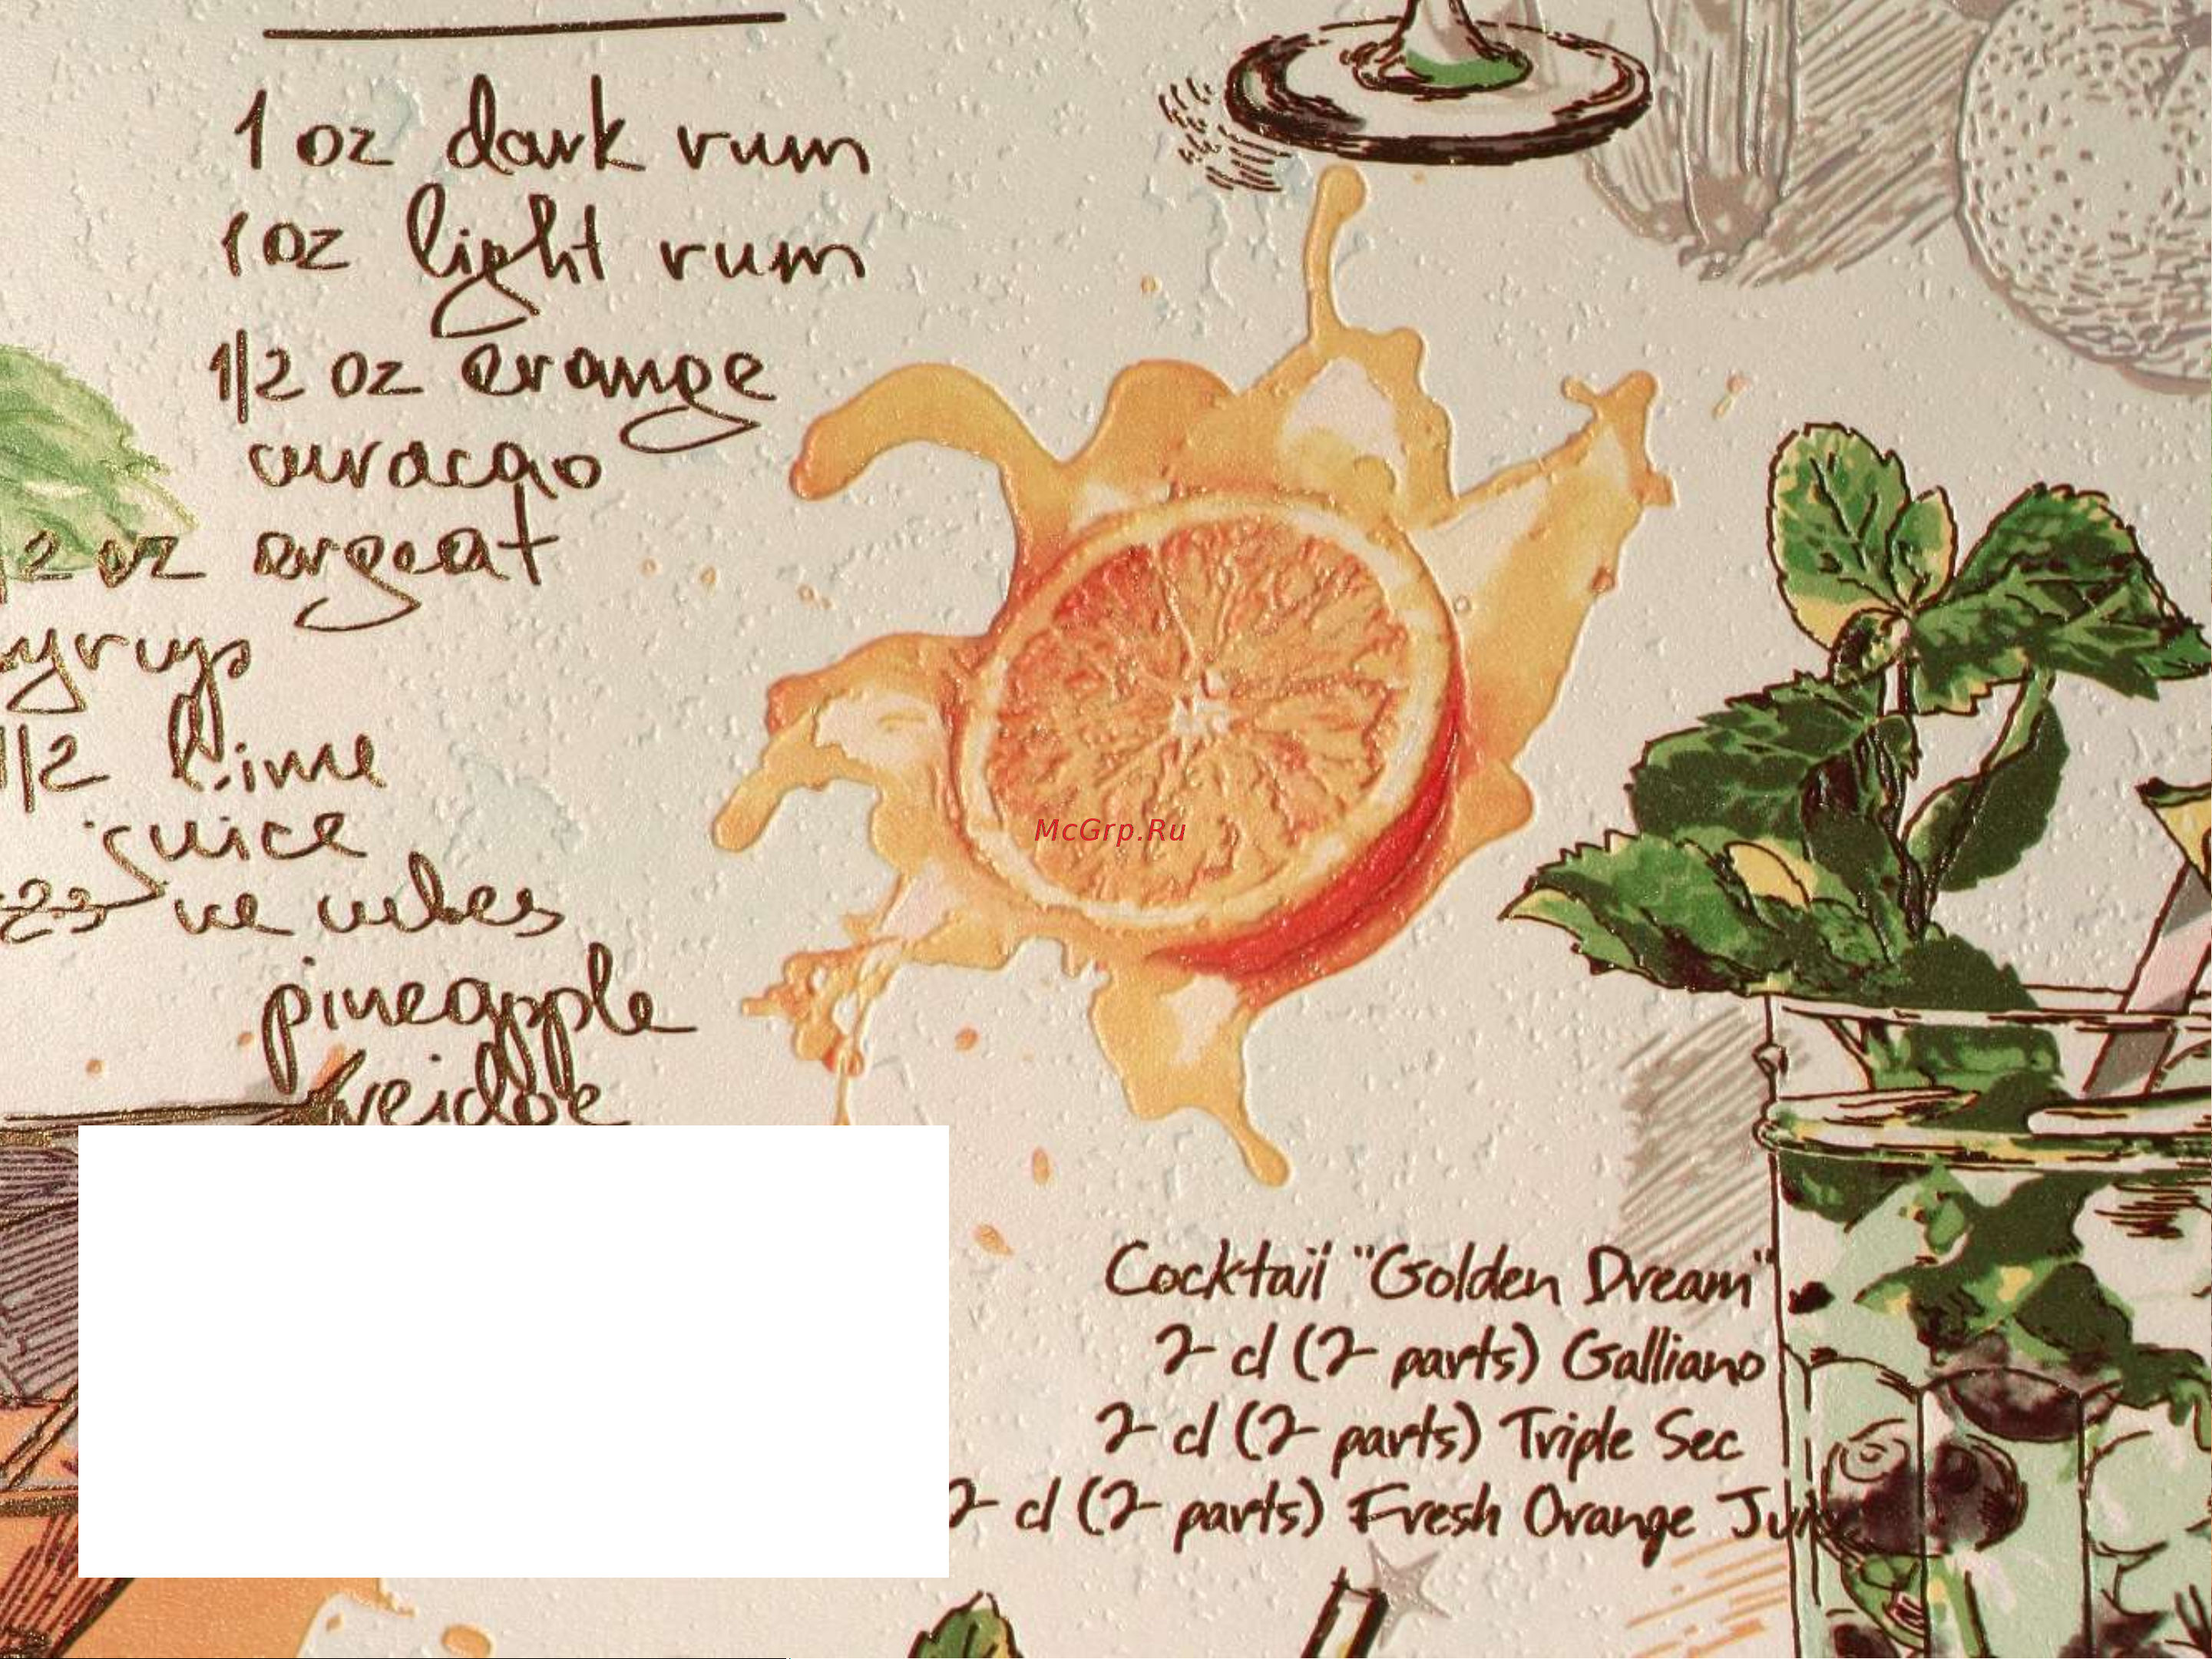 1 oz dark rum
1 oz light rum
1/2 oz orange
curacao
/2 oz orgeat
syrup
1/2 lime
juice
pineapple
McGrp.Ru
Cocktail "Golden Dream"
2 cl (2 parts) Galliano
2 cl (2 parts) Triple Sec
2 cl (2 parts) Fresh Orange Juice